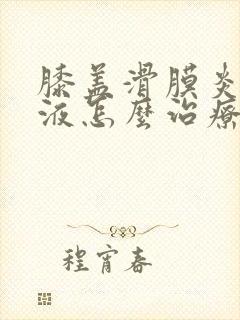 膝盖滑膜炎
液怎麼治療
程宵春